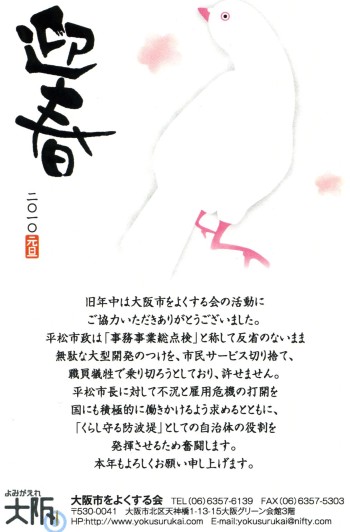 迎春
二〇一〇 元旦
旧年中は大阪市をよくする会の活動に
ご協力いただきありがとうございました。
平松市政は「事務事業総点検」と称して反省のないまま
無駄な大型開発のつけを、市民サービス切り捨て、
職員犠牲で乗り切ろうとしており、許せません。
平松市長に対して不況と雇用危機の打開を
国にも積極的に働きかけるよう求めるとともに、
「くらし守る防波堤」としての自治体の役割を
発揮させるため奮闘します。
本年もよろしくお願い申し上げます。
よみがえれ
大阪
大阪市をよくする会 TEL(06)6357-6139 FAX(06)6357-5303
〒530-0041 大阪市北区天神橋1-13-15大阪グリーン会館3階
HP:http://www.yokusurukai.com E-mail:yokusurukai@nifty.com